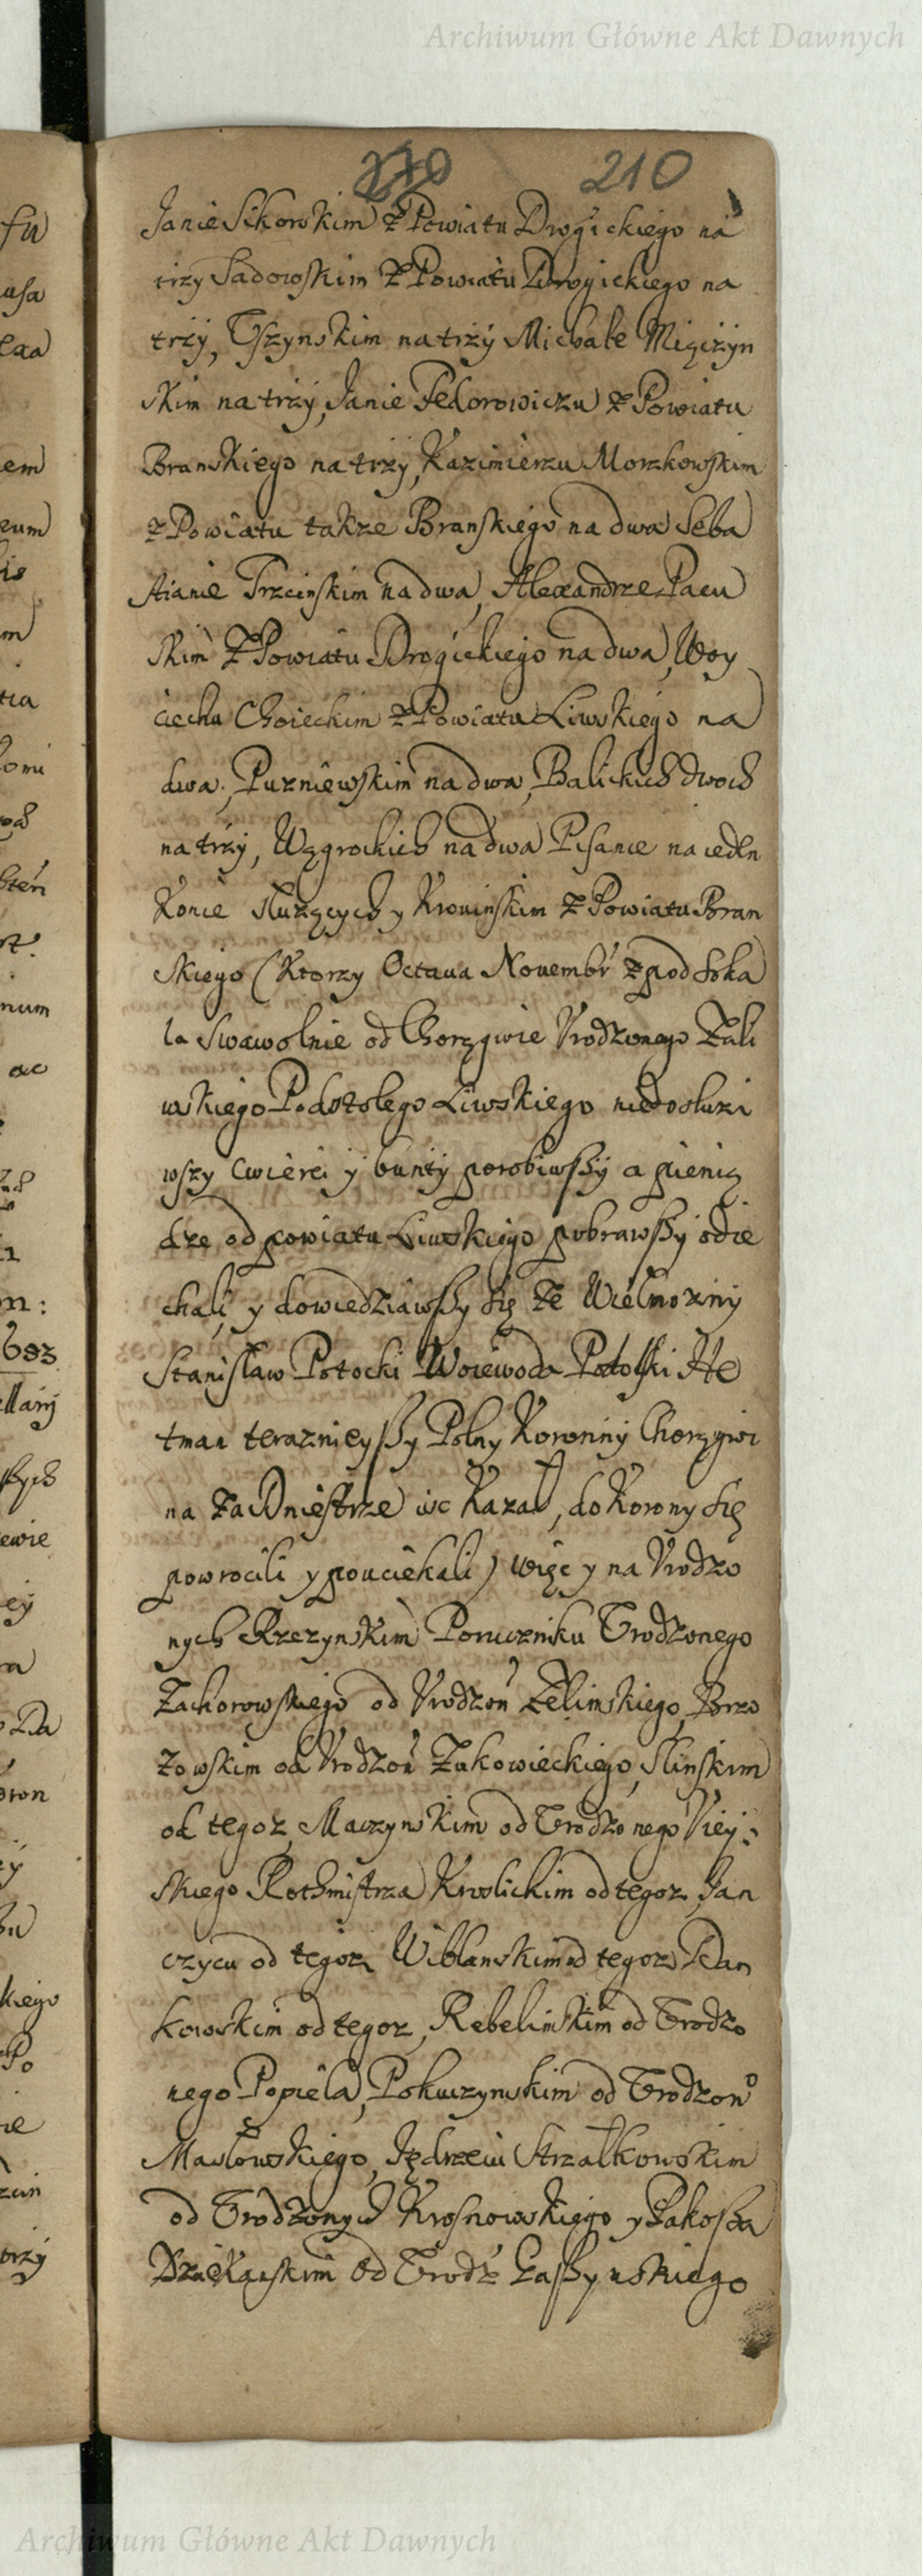 Archiwum Główne Akt Dawnych
210
Janie Sikorskim z Powiatu Drogickiego na
trzy Sadowskim z Powiatu Drogickiego na
trzy, Uszynskim na trzy Michale Mięzyn
skim na trzy, Janie Fedorowiczu z Powiatu
Branskiego na trzy, Kazimierzu Morzkowskim
z Powiatu takze Branskiego na dwa Seba
stianie Trzcinskim na dwa, Alexandrze Pacu
skim z Powiatu Drogickiego na dwa, Woy
ciechu Choieckim z Powiatu Liwskiego na
dwa, Puzniewskim na dwa, Balickich dwoch
na trzy, Węgrockich na dwa Pisance na iedn
Konie sluzących y Krouinskim z Powiatu Bran
skiego (Ktorzy Octaua Nouembr z pod Ska
la swawolnie od Chorągwie Vrodzonego Zali
wskiego Podstolego Liwskiego niedosluzi
wszy Cwierci y bunty porobiwszy a pienią
dze od powiatu Liwskiego pobrawszy odie
chali, y dowiedziawszy się ze Wielmozny
Stanislaw Potocki Woiewoda Podolski He
tman teraznieyszy Polny Koronny Chorągwi
na za Dniestrze isc Kazał, do Korony się
powrocili y pouciekali) więc y na Vrodzo
nych Rzezynskim Poruczniku Urodzonego
Zachorowskiego od Vrodzon Zelinskiego, Brzo
zowskim od Vrodzon Zukowieckiego, Slinskim
od tegoz, Maczynskim od Urodzonego Viey:
skiego Rothmistrza Krolickim od tegoz, Jan
czycu od tegoz, Wiblanskim od tegoz, Dan
kowskim od tegoz, Rebelinskim od Urodzo
nego Popiela, Pokuczynskim od Urodzono
Maslowskiego, Jędrzeiu Strzalkowskim
od Urodzonych Krosnowskiego y Pakosza
Dziekanskim od Urodz Gaszynskiego
Archiwum Główne Akt Dawnych